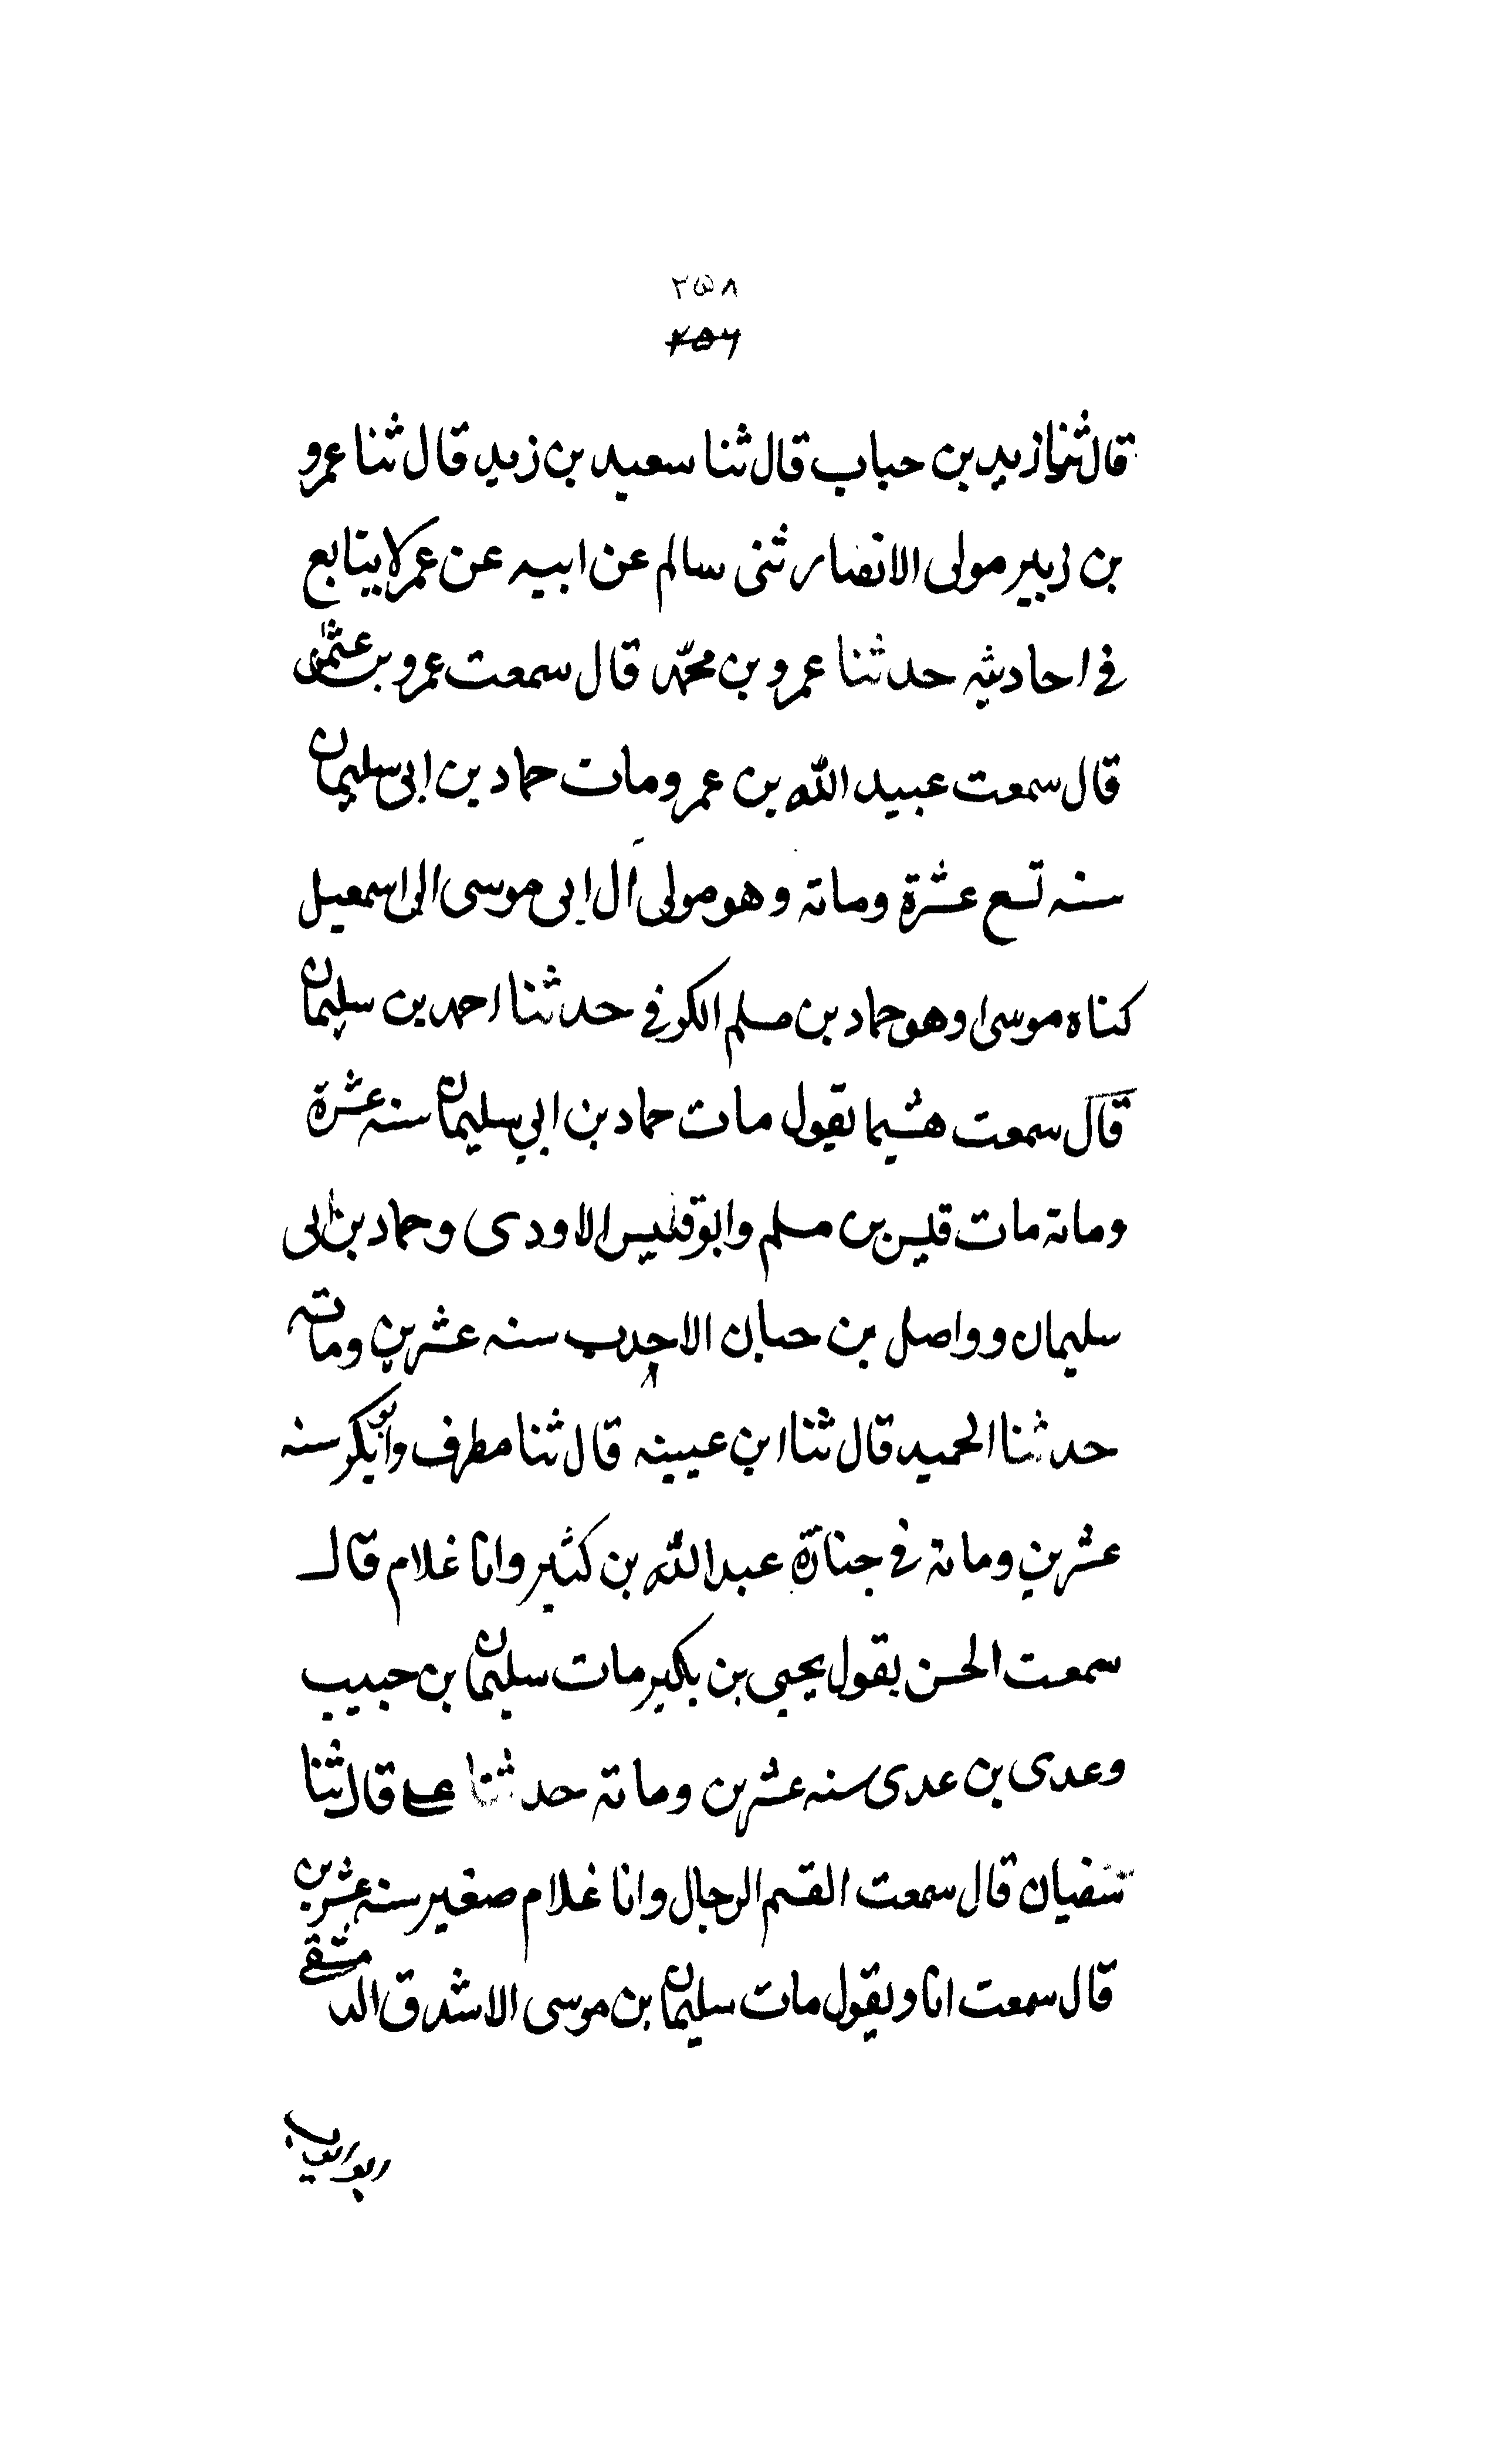 ۲۵۸
۲۵۶
قال ثنا زيد بن حباب قال ثنا سعيد بن زيد قال ثنا عمرو
بن زبير مولى الانصار ثنى سالم عن ابيه عن عمر لا يتابع
في احاديثه حدثنا عمرو بن محمّد قال سمعت عمرو بن عثمٰن
قال سمعت عبيد الله بن عمرو مات حماد بن ابى سليمان
سنه تسع عشرة ومائة وهو مولى اٰل ابى موسى ابى اسمعيل
كناه موسى وهو حماد بن مسلم الكوفي حدثنا احمد بن سليمان
قال سمعت هشيما يقول مات حماد بن ابي سليمان سنه عشرة
ومائة مات قيس بن مسلم وابو قيس الاودى وحماد بن ابى
سليمان وواصل بن حبان الاحدب سنه عشرين ومائه
حدثنا الحميد قال ثنا ابن عيينه قال ثنا مطرف وابو بكر سنه
عشرين ومائة في جنازة عبد الله بن كثير وانا غلام قال
سمعت الحسن يقول يحيى بن بكير مات سليمان بن حبيب
وعدى بن عدى سنه عشرين ومائة حدثنا على قال ثنا
سفيان قال سمعت القسم الرحال وانا غلام صغير سنه عشرين
قال سمعت انا ويقول مات سليمان بن موسى الاشدق الدمشقي